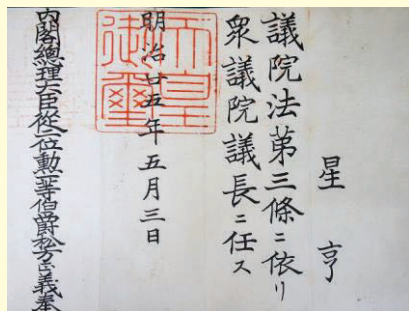 星亨
議院法第三條ニ依リ
衆議院議長ニ任ス
明治廿五年五月三日
天皇御璽
內閣總理大臣從二位勳一等伯爵松方正義奉